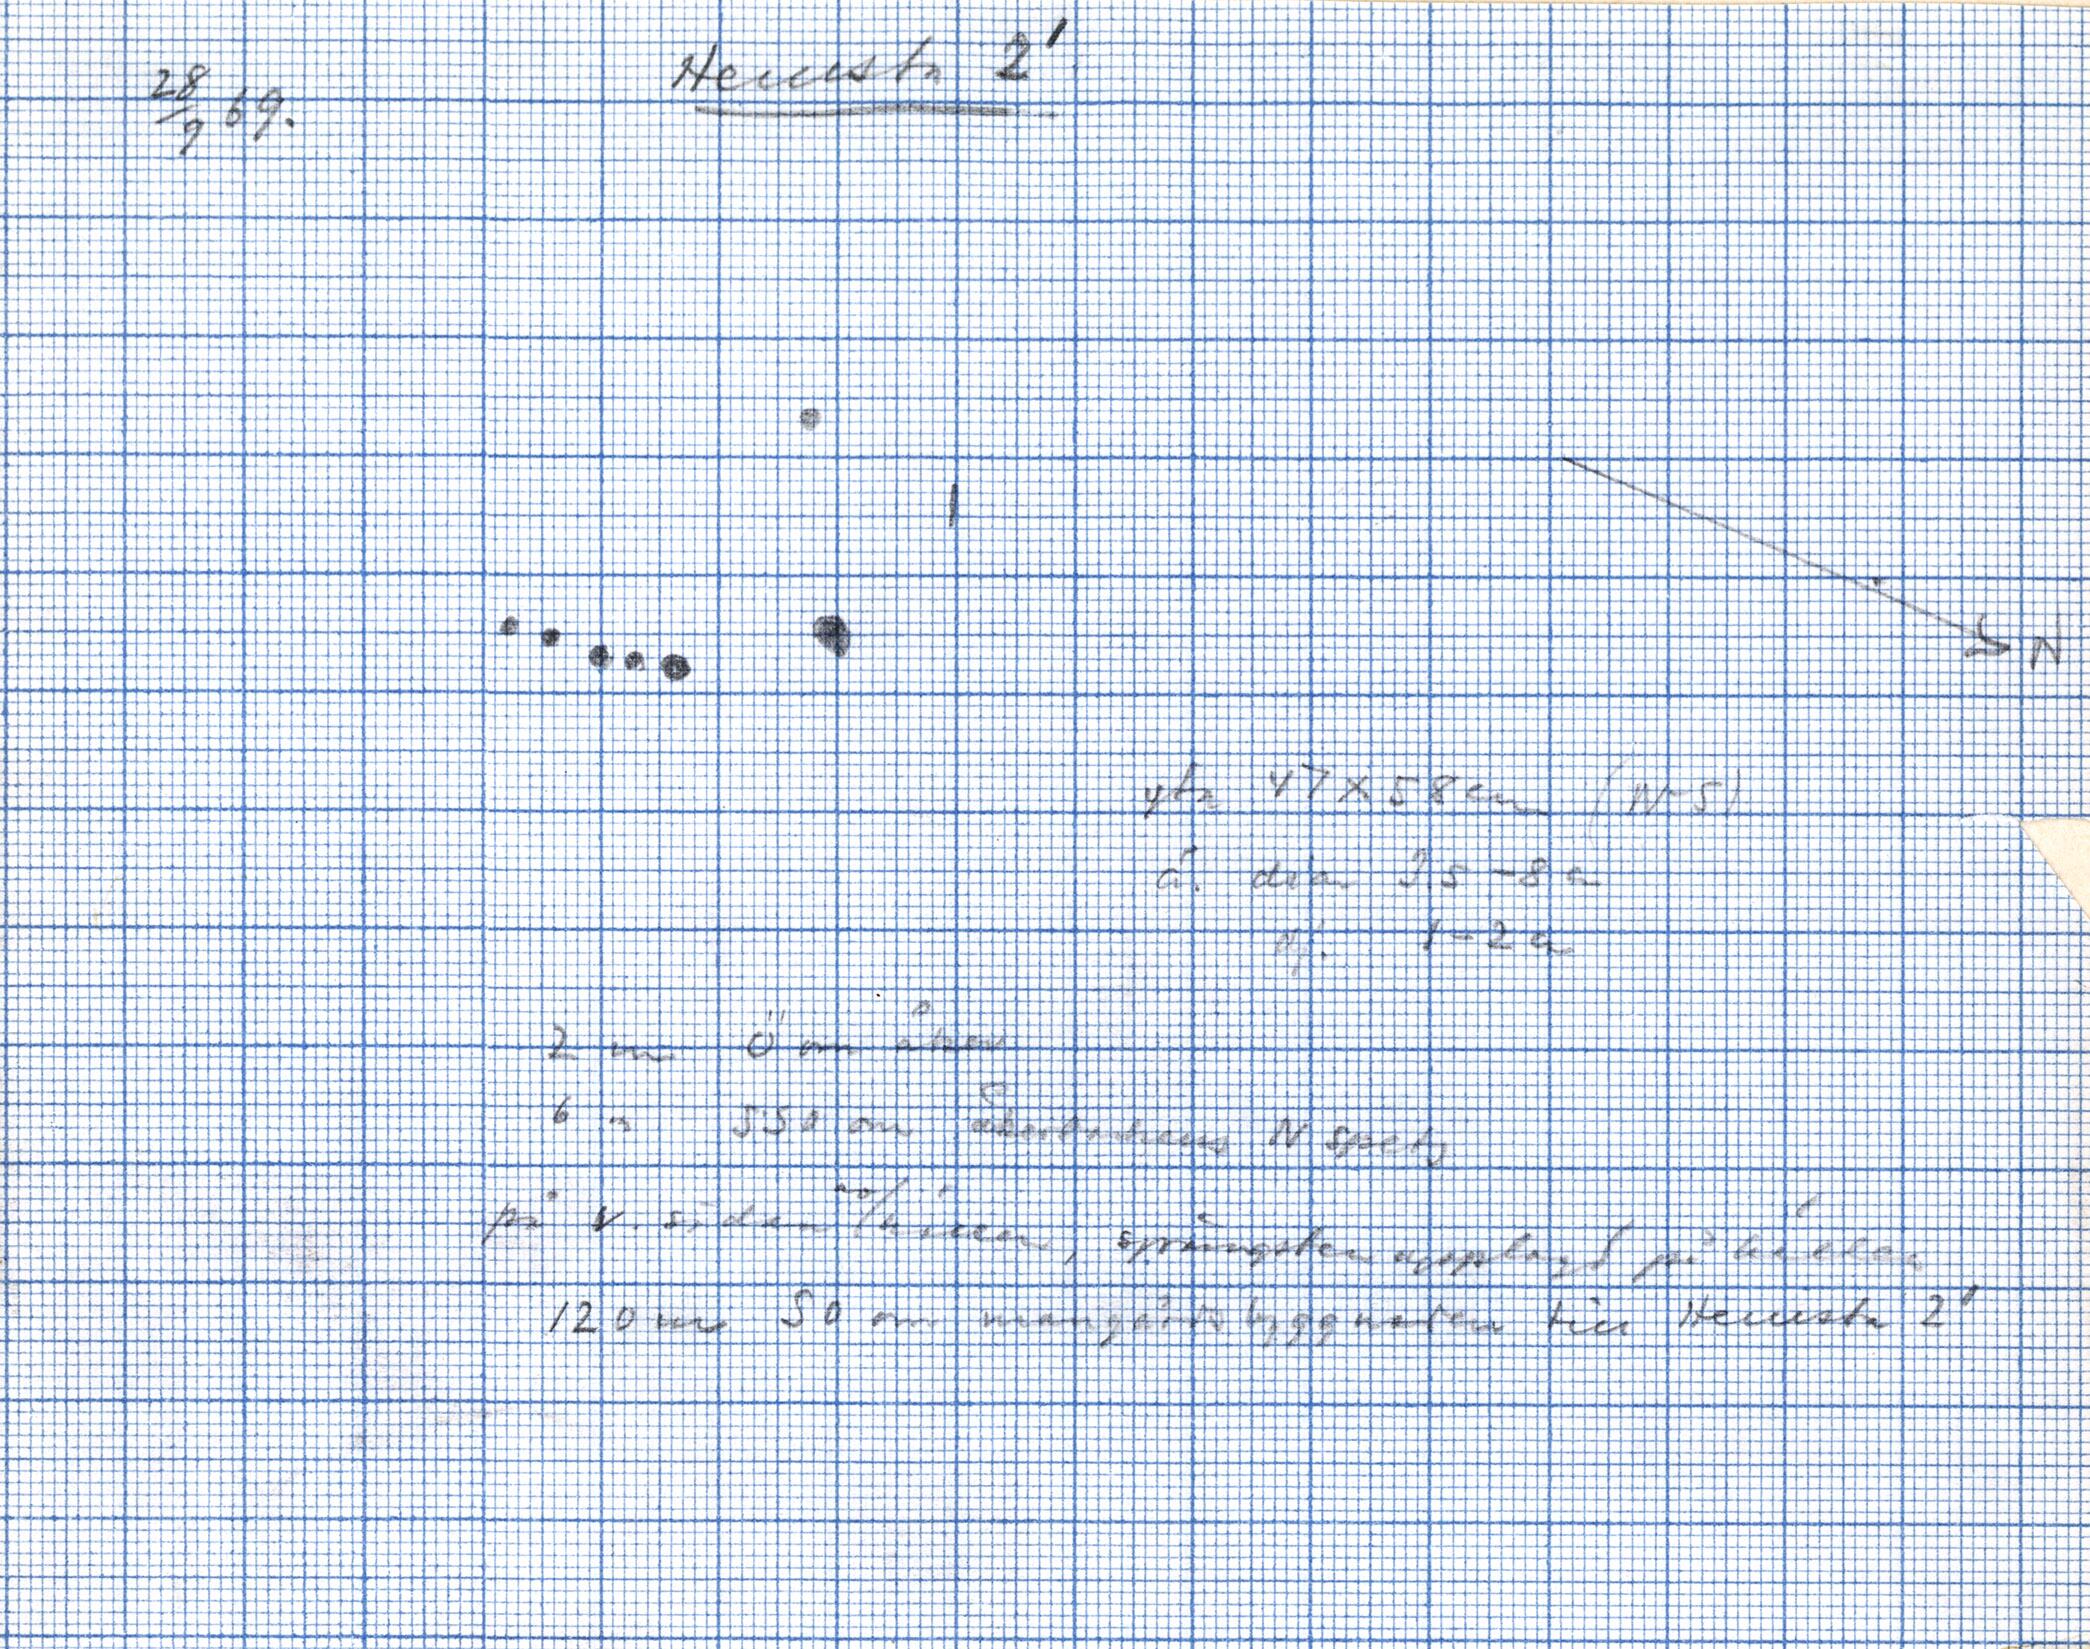 28/9 69.
Hemsta 2'
N
yta 47x58 cm (N-S)
ä. diam 3.5-8 cm
dj. 1-2 cm
2 m Ö om åker
6 m SSO om åkerbackens N spets
på V. sidan av hällen, sprängsten upplagd på hällen
120 m SO om mangårdsbyggnaden till Hemsta 2'